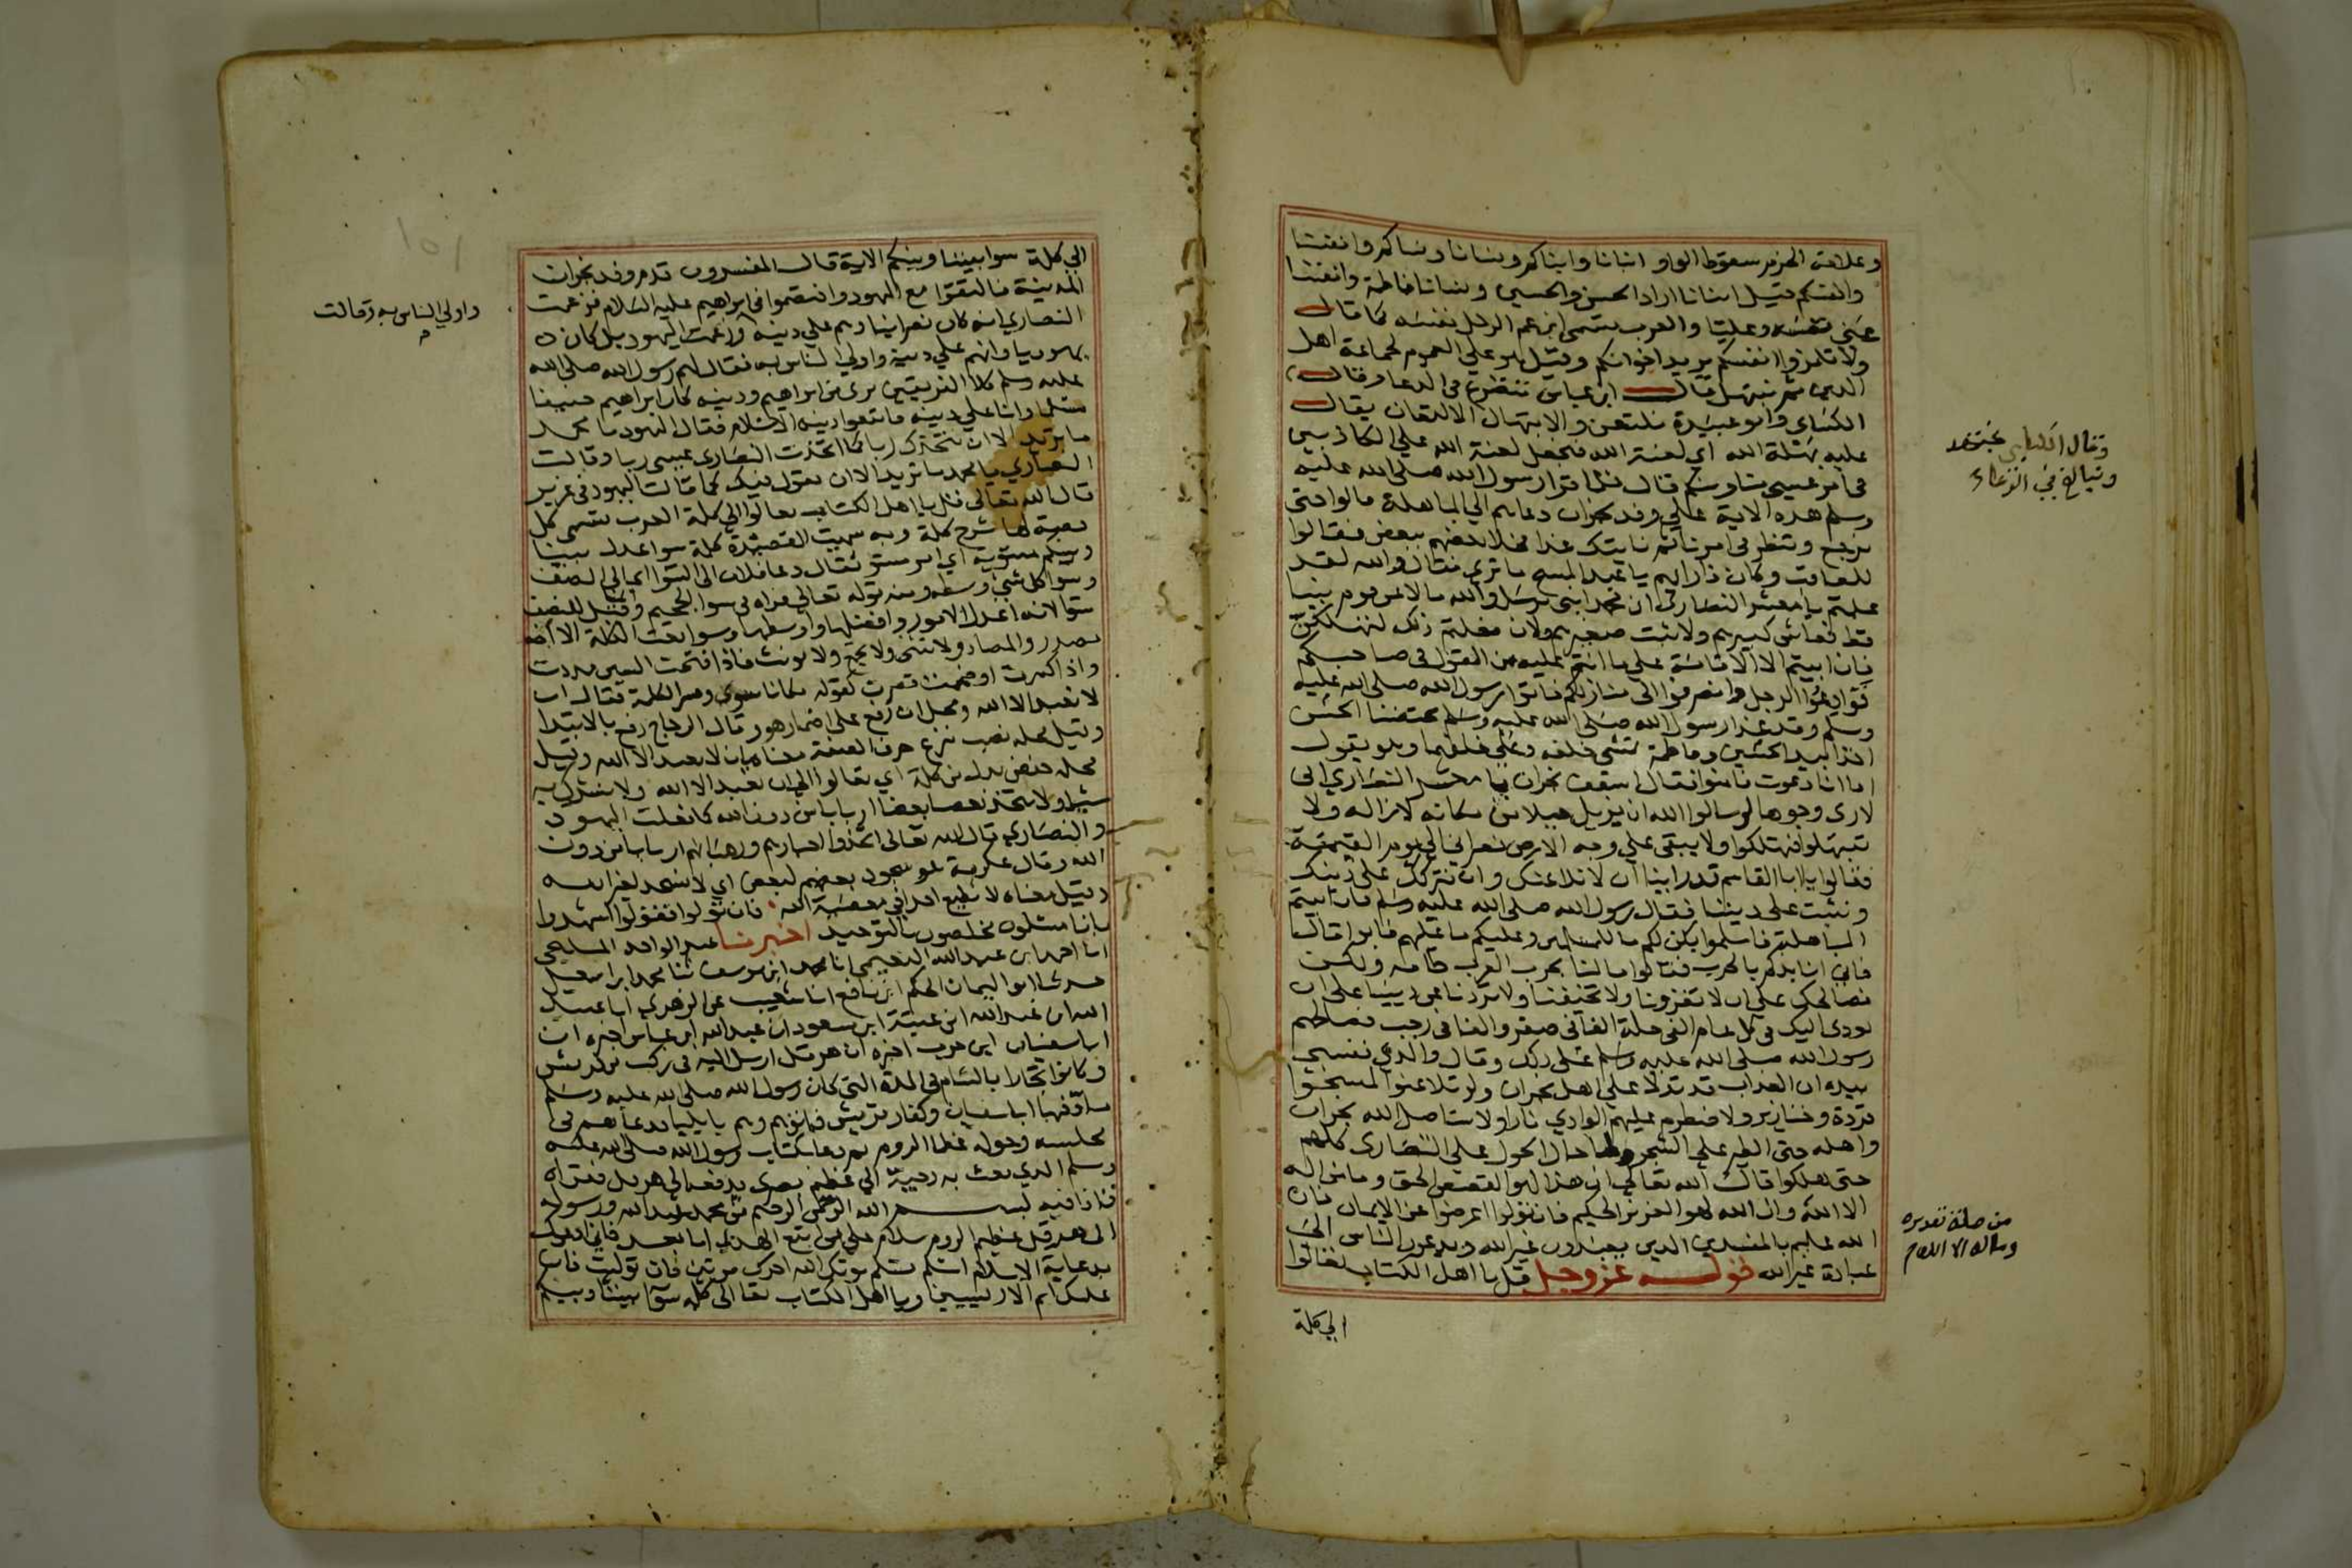 وعلامة الجزم سقوط الواو ابنانا وابناكم ونسانا ونساكم وانفسنا
وانفسكم قيل ابنانا اراد الحسن والحسين ونسانا فاطمة وانفسنا
عني نفسه وعليا والعرب تسمى ابن عم الرجل نفسه كما قال
ولا تلمزوا انفسكم يريد اخوانكم وقيل هو علي العموم لجماعة اهل
الدين ثم نبتهل قال ابن عباس نتضرع في الدعا وقال
الكساي وابو عبيدة نلتعن والابتهال الالتعان يقال
عليه بهلة الله اي لعنة الله فنجعل لعنة الله علي الكاذبين
في امر عيسى فلما قرا رسول الله صلى الله عليه
وسلم هذه الاية علي وفد نجران ودعاهم الي المباهلة قالوا حتى
نرجع وننظر في امرنا ثم ناتيك غدا فخلا بعضهم ببعض فقالوا
للعاقب وكان ذا رايهم يا عبد المسيح ما تري فقال والله لقد
علمتم يا معشر النصارى ان محمدا نبي مرسل والله ما لاعن قوم نبيا
قط فعاش كبيرهم ولا نبت صغيرهم ولان فعلتم ذلك لنهلكن
فان ابيتم الا الاقامة علي ما انتم عليه من القول في صاحبكم
فوادعوا الرجل وانصرفوا الى منازلكم فاتوا رسول الله صلى الله عليه
وسلم وقد غدا رسول الله صلى الله عليه وسلم محتضنا الحسن
اخذا بيد الحسين وفاطمة تمشي خلفه وعلي خلفها وهو يقول
اذا انا دعوت فامنوا فقال اسقف نجران يا معشر النصاري اني
لاري وجوها لو سالوا الله ان يزيل جبلا من مكانه لازاله ولا
تبتهلوا فتهلكوا ولا يبقى علي وجه الارض نصراني الي يوم القيمة
فقالوا يا ابا القاسم قد راينا ان لا نلاعنك وان نتركك على دينك
ونثبت على ديننا فقال رسول الله صلى الله عليه وسلم فان ابيتم
المباهلة فاسلموا يكن لكم ما للمسلمين وعليكم ما عليهم فابوا قال
فاني انابذكم بالحرب فقالوا ما لنا بحرب العرب طاقه ولكن
نصالحك على ان لا تغزونا ولا تخيفنا ولا تردنا عن ديننا على ان
نودي اليك في كل عام الفي حلة الفا في صفر والفا في رجب فصالحهم
رسول الله صلى الله عليه وسلم على ذلك وقال والذي نفسي
بيده ان العذاب قد تدلا علي اهل نجران ولو تلاعنوا لمسخوا
قردة وخنازير ولاضطرم عليهم الوادي نارا ولاستاصل الله نجران
واهله حتى الطير على الشجر ولما حال الحول علي النصارى كلهم
حتى هلكوا قال الله تعالي ان هذا لهو القصص الحق وما من اله
الا الله وان الله لهو العزيز الحكيم فان تولوا اعرضوا عن الايمان فان
الله عليم بالمفسدين الذين يعبدون غير الله ويدعون الناس الي
عبادة غير الله قوله عز وجل قل يا اهل الكتاب تعالوا
الي كلمة
وقال الكلبي نجتهد
ونبالغ في الدعاء
من صلة تقديره
وما اله الا الله
الي كلمة سوا بيننا وبينكم الاية قال المفسرون قدم وفد نجران
المدينة فالتقوا مع اليهود واختصموا في ابراهيم عليه السلام فزعمت
النصاري انه كان نصرانيا وهم علي دينه وزعمت اليهود بل كان
يهوديا وانهم علي دينه واولي الناس به فقال لهم رسول الله صلى الله
عليه وسلم كلا الفريقين بري من ابراهيم ودينه كان ابراهيم حنيفا
مسلما وانا علي دينه فاتبعوا دينه الاسلام فقال اليهود يا محمد
ما تريد الا ان نتخذك ربا كما اتخذت النصارى عيسى ربا وقالت
النصاري يا محمد ما تريد الا ان نقول فيك كما قالت اليهود في عزير
قال الله تعالى قل يا اهل الكتاب تعالوا الي كلمة العرب تسمى كل
قصة لها شرح كلمة وبه سميت القصيدة كلمة سوا عدل بيننا
وبينكم مستوية اي امر مستو يقال دعا فلان الى السوا اي الي النصف
وسوا كل شي وسطه ومنه قوله تعالي فراه في سوا الجحيم وقيل للنصف
سوا لانه اعدل الامور وافضلها واوسطها وسوا نعت الكلمة الا انه
مصدر والمصادر لا تثنى ولا تجمع ولا تونث فاذا فتحت السين مددت
واذا كسرت او ضممت قصرت كقوله مكانا سوى وفسر الكلمة فقال ان
لا نعبد الا الله ومحل ان رفع علي اضمار هو وقال الزجاج رفع بالابتدا
وقيل محله نصب بنزع حرف الصفة معناه بان لا نعبد الا الله وقيل
محله خفض بدلا من كلمة اي تعالوا الى ان نعبد الا الله ولا نشرك به
شيا ولا يتخذ بعضنا بعضا اربابا من دون الله كما فعلت اليهود
والنصاري قال الله تعالى اتخذوا احبارهم ورهبانهم اربابا من دون
الله وقال عكرمة هو سجود بعضهم لبعض اي لا نسجد لغير الله
وقيل معناه لا نطيع احدا في معصية الله فان تولوا فقولوا اشهدوا
بانا مسلمون مخلصون بالتوحيد اخبرنا عبد الواحد المليحي
انا احمد ابن عبد الله النعيمي انا محمد ابن يوسف ثنا محمد ابن اسمعيل
حدثنا ابو اليمان الحكم ابن نافع انا شعيب عن الزهري انا عبيد
الله ابن عبد الله ابن عتبة ابن مسعود ان عبد الله ابن عباس اخبره ان
ابا سفيان ابن حرب اخبره ان هرقل ارسل اليه في ركب من قريش
وكانوا تجارا بالشام في المدة التي كان رسول الله صلى الله عليه وسلم
ماد فيها ابا سفيان وكفار قريش فاتوهم وهم بايليا فدعاهم في
مجلسه وحوله عظما الروم ثم دعا بكتاب رسول الله صلى الله عليه
وسلم الذي بعث به دحية الي عظيم بصري يدفعه الي هرقل فقراه
فاذا فيه بسم الله الرحمن الرحيم من محمد عبد الله ورسوله
الى هرقل عظيم الروم سلام علي من اتبع الهدى اما بعد فاني ادعوك
بدعاية الاسلام اسلم تسلم يوتك الله اجرك مرتين فان توليت فان
عليك اثم الاريسيين ويا اهل الكتاب تعالوا الى كلمة سوا بيننا وبينكم
واولي الناس به وقالت
١٥١